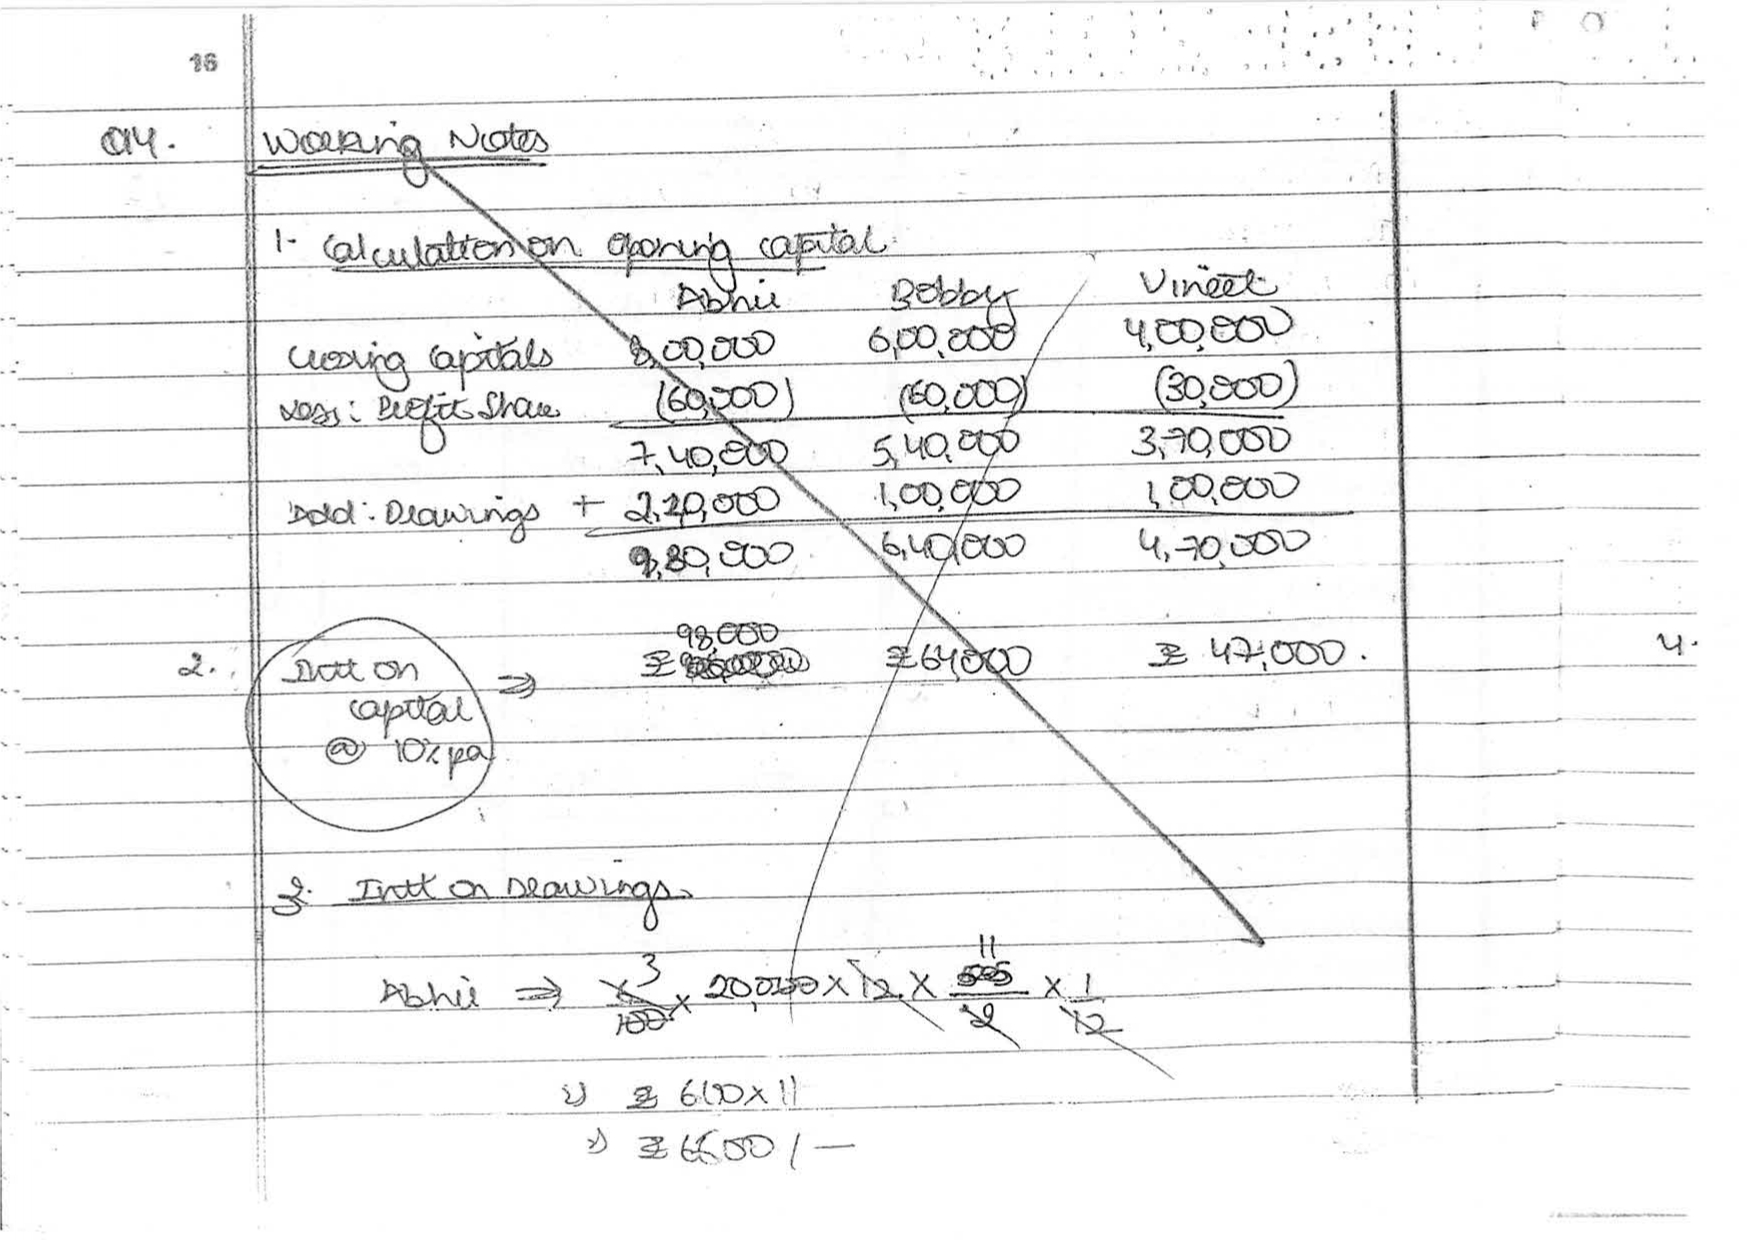 16
Q14. Working Notes
1. Calculation on opening capital
Abhir Bobby Vineet
Closing Capitals 8,00,000 6,00,000 4,00,000
Less: Profit Share (60,000) (60,000) (30,000)
7,40,000 5,40,000 3,70,000
Add: Drawings + 2,40,000 1,00,000 1,00,000
9,80,000 6,40,000 4,70,000
98,000
2. Intt on ⇒ ₹ ₹ 64,000 ₹ 47,000. 4.
capital
@ 10% pa
3. Intt on Drawings.
3 11
Abhir ⇒ 6/100 × 20,000 × 12 × /2 × 1/12
⇒ ₹ 600 × 11
⇒ ₹ 6600/-